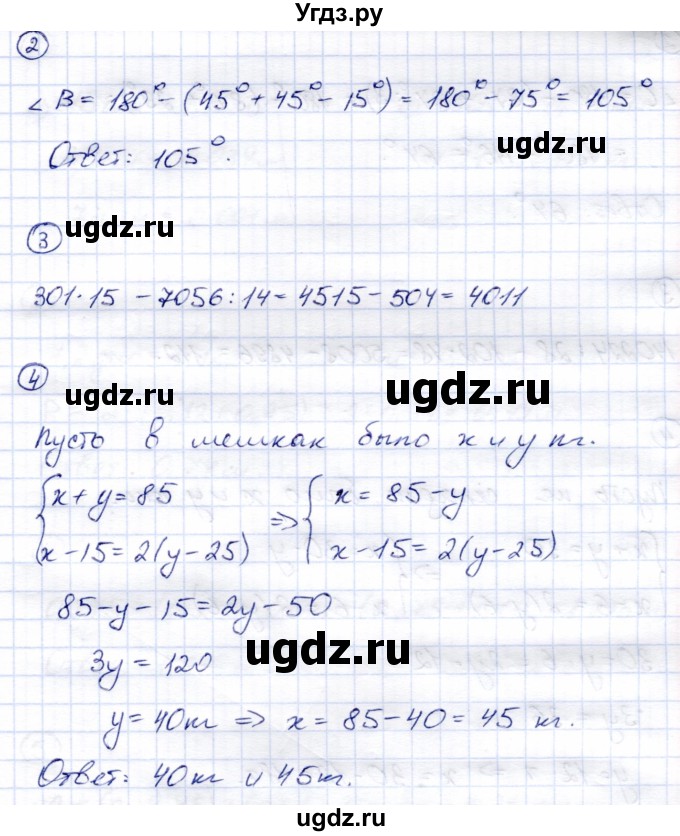 Угдз.ру
2
∠ B = 180° - (45° + 45° - 15°) = 180° - 75° = 105°
Ответ: 105°.
ugdz.ru
ugdz.ru
3
301·15 - 7056:14 = 4515 - 504 = 4011
4
ugdz.ru
ugdz.ru
Пусть в мешках было x и y кг.
{x + y = 85
x - 15 = 2(y - 25) => {x = 85 - y
x - 15 = 2(y - 25)
85 - y - 15 = 2y - 50
3y = 120
ugdz.ru
y = 40кг => x = 85 - 40 = 45 кг.
Ответ: 40кг и 45кг.